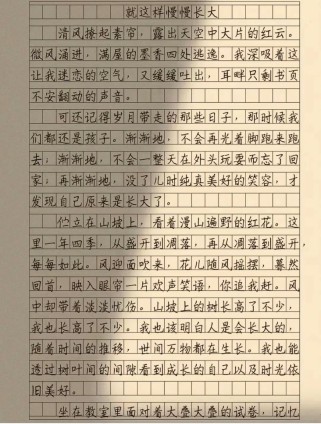 就这样慢慢长大
清风撩起素帘，露出天空中大片的红云。
微风涌进，满屋的墨香四处逃逸。我深吸着这
让我迷恋的空气，又缓缓吐出，耳畔只剩书页
不安翻动的声音。
可还记得岁月带走的那些日子，那时候我
们都还是孩子。渐渐地，不会再光着脚跑来跑
去；渐渐地，不会一整天在外头玩耍而忘了回
家；再渐渐地，没了儿时纯真美好的笑容，才
发现自己原来是长大了。
伫立在山坡上，看着漫山遍野的红花。这
里一年四季，从盛开到凋落，再从凋落到盛开，
每每如此。风迎面吹来，花儿随风摇摆，蓦然
回首，映入眼帘一片欢声笑语，你追我赶。风
中却带着淡淡忧伤。山坡上的树长高了不少，
我也长高了不少。我也该明白人是会长大的，
随着时间的推移，世间万物都在生长。我也能
透过树叶间的间隙看到成长的自己以及时光依
旧美好。
坐在教室里面对着大叠大叠的试卷，记忆